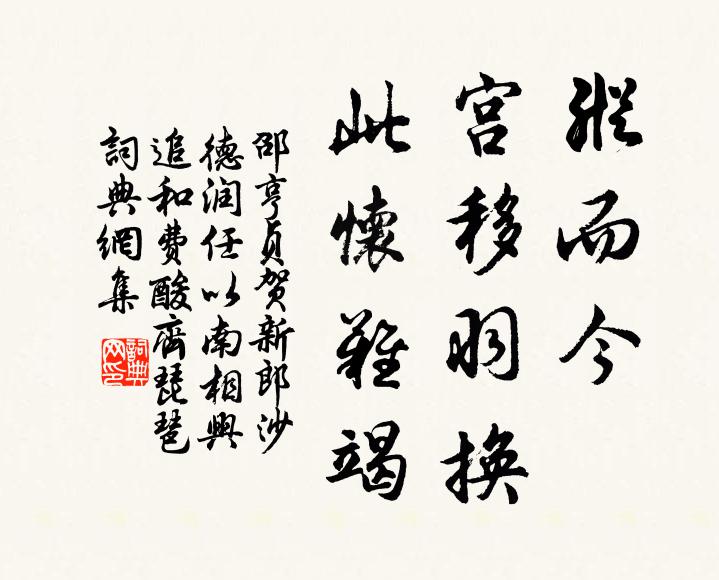 縱而今
宫移羽换
此懷難竭
邵亨貞賀新郎沙
德润任以南相與
追和費酸齋琵琶
詞典網集
詞典网印